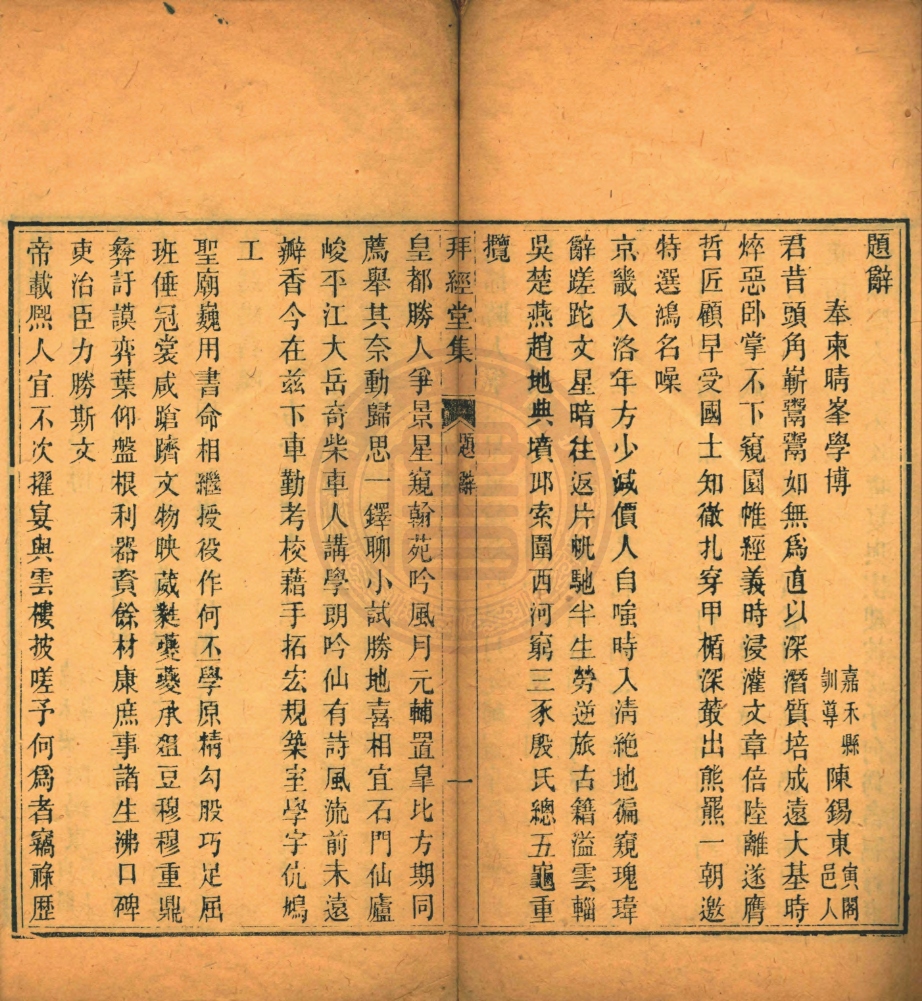 題辭
奉柬晴峯學博　嘉禾縣訓導陳錫東寅閣邑人
君昔頭角嶄鬻鬻如無為直以深潛質培成遠大基時
焠惡卧掌不下窺園帷經義時浸灌文章倍陸離遂膺
哲匠顧早受國士知徹扎穿甲楯深叢出熊羆一朝邀
特選鴻名噪
京畿入洛年方少減價人自嗤時入淸絶地徧窺瑰瑋
辭蹉跎文星暗往返片帆馳半生勞逆旅古籍溢雲輜
吳楚燕趙地典墳邱索圍西河窮三豕殷氏總五龜重
攬
拜經堂集　題辭　一
皇都勝人爭景星窺翰苑吟風月元輔置皐比方期同
薦舉其奈動歸思一鐸聊小試勝地喜相宜石門仙廬
峻平江大岳奇柴車人講學朗吟仙有詩風流前未遠
瓣香今在兹下車勤考校藉手拓宏規築室學宇伉鳩
工
聖廟巍用書命相繼授役作何丕學原精勾股巧足屈
班倕冠裳咸蹌躋文物映葳蕤夔夔承俎豆穆穆重鼎
彝訏謨弈葉仰盤根利器資餘材康庶事諸生沸口碑
吏治臣力勝斯文
帝載熙人宜不次擢宴與雲樓披嗟予何為者竊祿歷